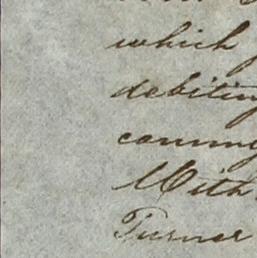 which
debiting
coming
With
Turner